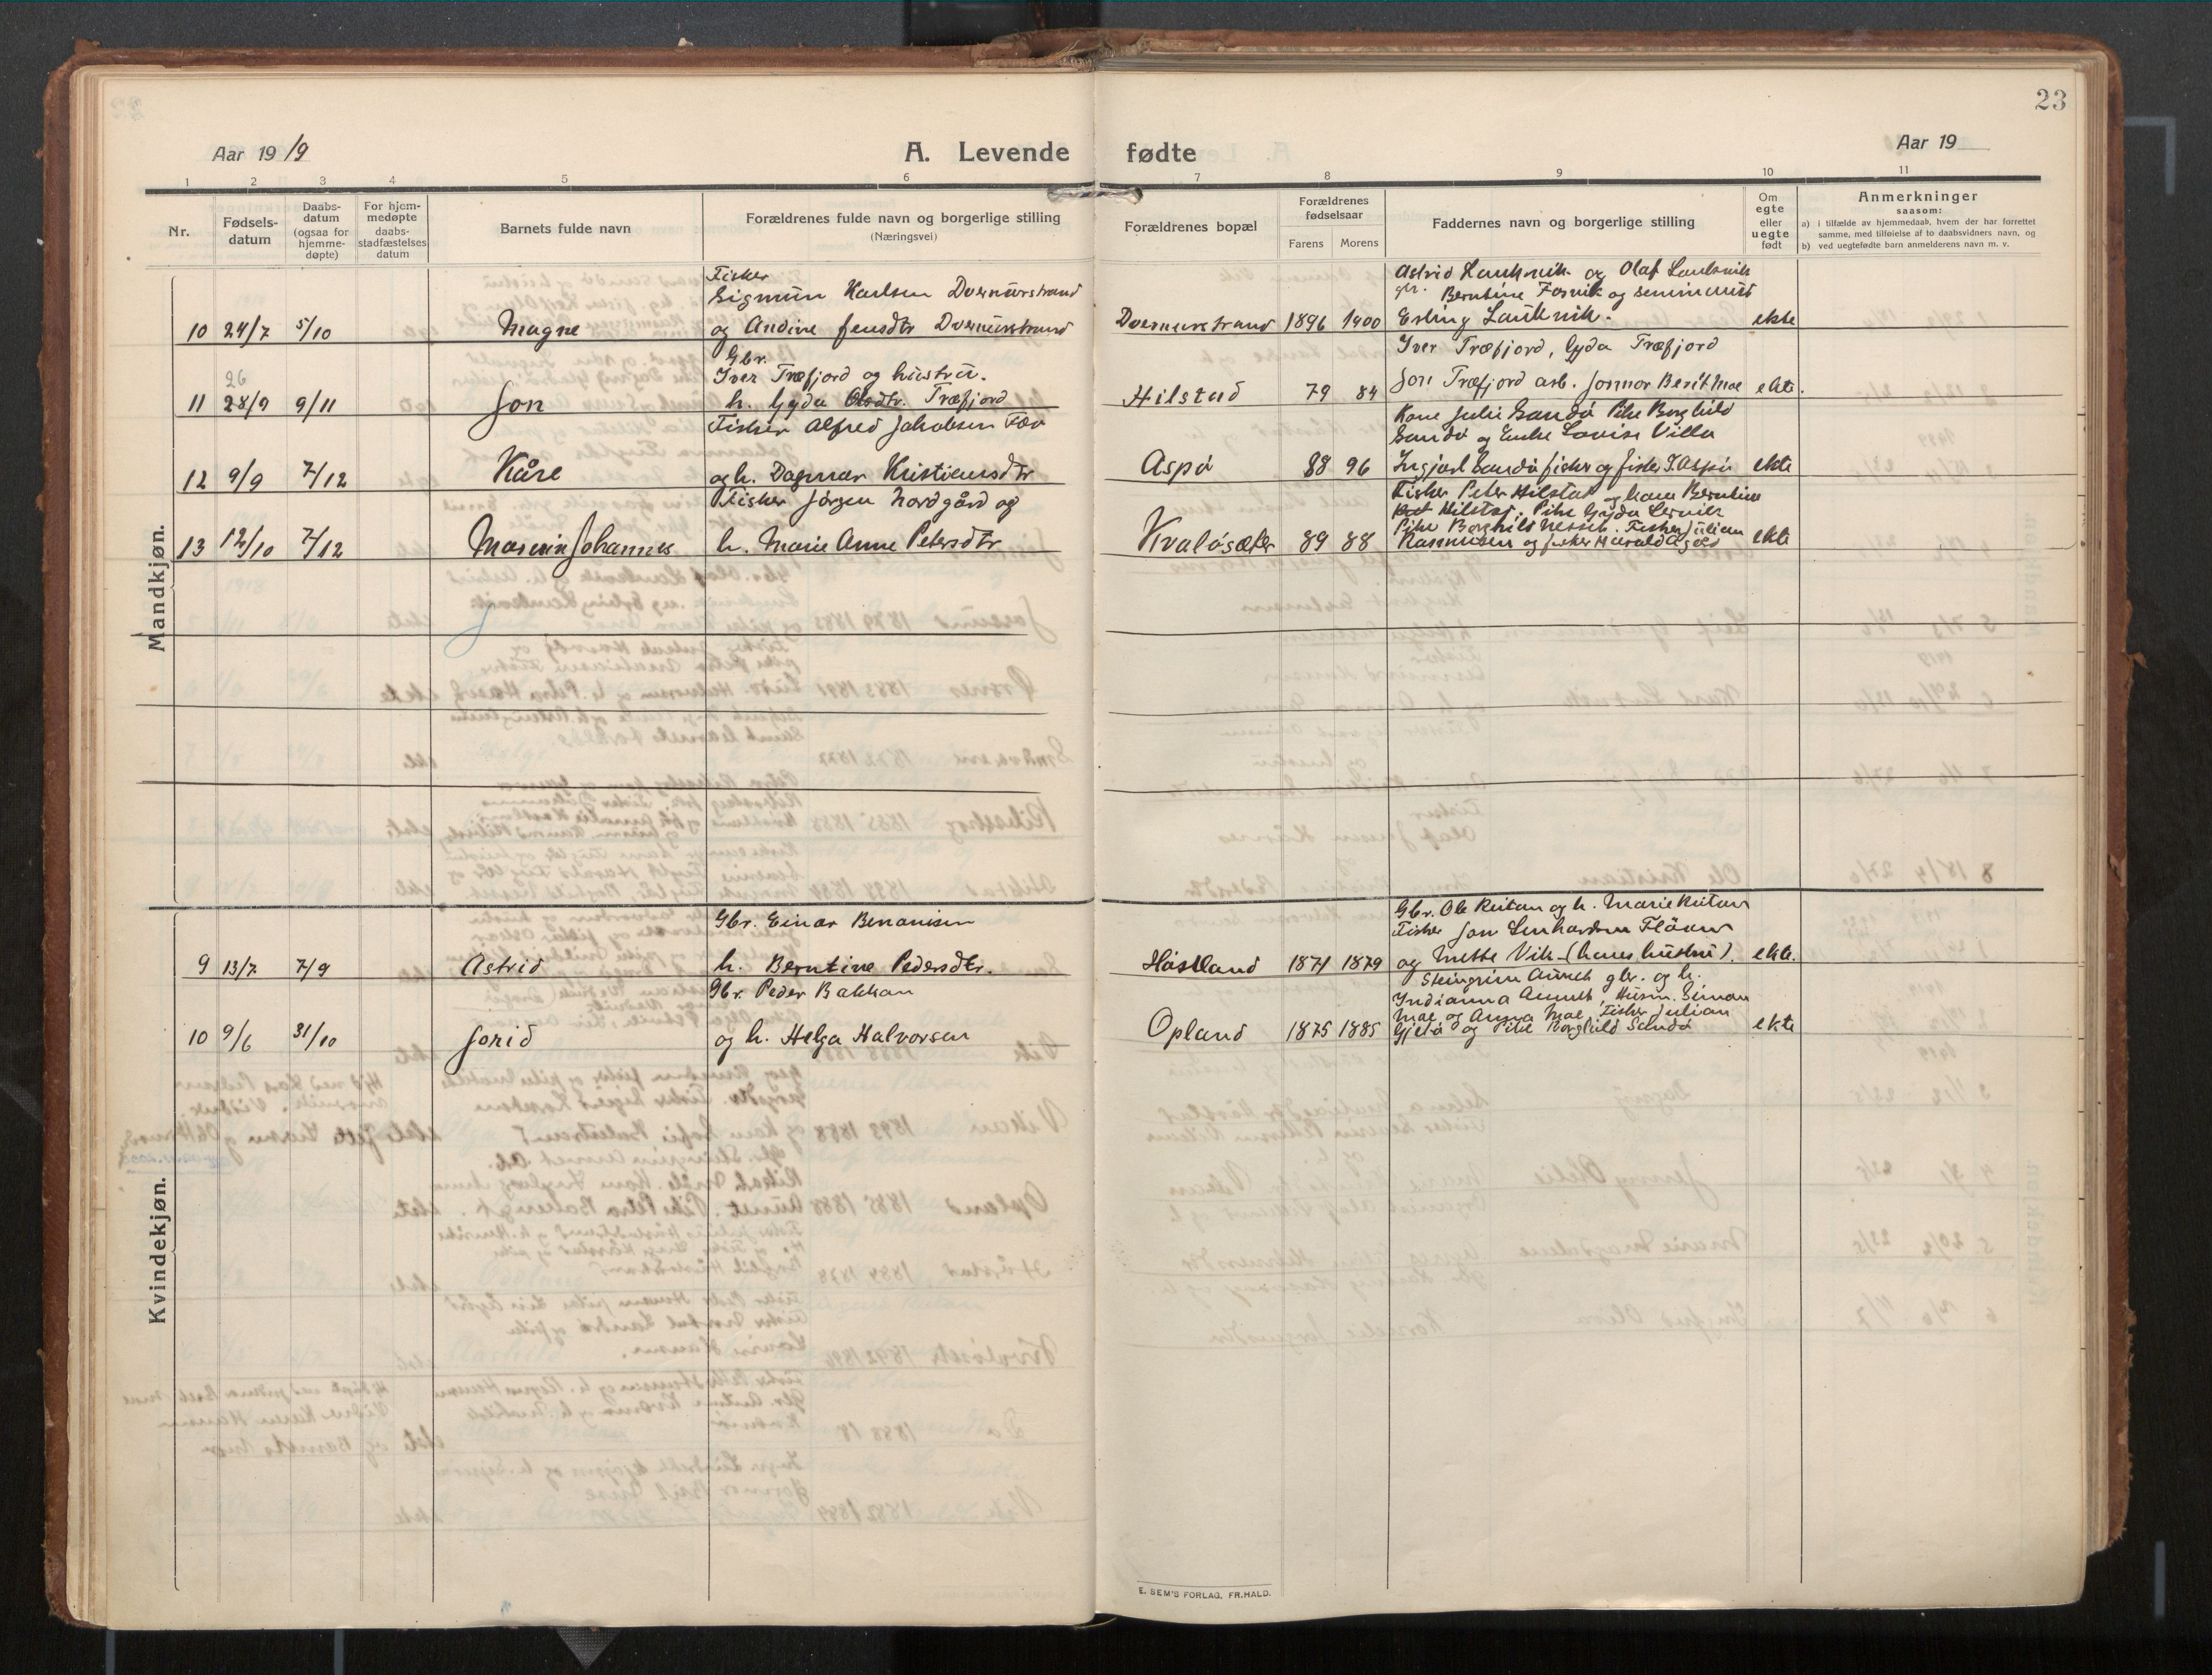 23
Aar 1919
A. Levende fødte
Aar 19
1 2 3 4 5 6 7 8 9 10 11
Nr.
Fødsels-
datum
Daabs-
datum
(ogsaa for
hjemme-
døpte)
For hjem-
medøpte
daabs-
stadfæstelses
datum
Barnets fulde navn
Forældrenes fulde navn og borgerlige stilling
(Næringsvei)
Forældrenes bopæl
Forældrenes
fødselsaar
Farens Morens
Faddernes navn og borgerlige stilling
Om
egte
eller
uegte
født
Anmerkninger
saasom:
a) i tilfælde av hjemmedaab, hvem der har forrettet
samme, med tilføielse af to daabsvidners navn, og
b) ved uegtefødte barn anmelderens navn m. v.
Mandkjøn.
10 24/7 5/10 Magne
Fisker
Sigmun Karlsen Dvernesstrand
og Andine Jensdtr Dvernesstrand
Dvernesstrand 1896 1900
Astrid Lauknik og Olaf Lauknik
gbr. Berntine Forvik og seminarist
Erling Lauknik.
ekte
11 26 28/9 9/11 Jon
Gbr.
Iver Træfjord og hustru.
h. Gyda Olsdtr. Træfjord
Hilstad 79 84
Iver Træfjord, Gyda Træfjord
Jon Træfjord arb. Jormor Berit Moe
ekte.
12 9/9 7/12 Kåre
Fisker Alfred Jakobsen
og h. Dagmar Kristiansdtr
Aspø 88 96
Kone Julie Sandø Pike Borghild
Sandø og Enke Lovise Villa
Ingjard Sandø fisker og fisker J. Aspø
ekte
13 12/10 7/12 Marvin Johannes
Fisker Jørgen Nordgård og
h. Marie Anne Petersdtr
Kvaløsæter 89 88
Fisker Peter Hilstad og kone Berntine
Hilstad. Pike Gyda Lervik
Pike Borghild Nesset. Fisker Julian
Rasmussen og fisker Harald
ekte
Kvindekjøn.
9 13/7 7/9 Astrid
Gbr. Einar Benonisen
h. Berntine Pedersdtr.
Håstland 1871 1879
Gbr. Ole Reitan og h. Marie Reitan
Fisker Jon Lenhardsen
og Mette Vik (hans hustru).
ekte.
10 9/6 31/10 Jorid
Gbr. Peder Bakkan
og h. Helga Halvorsen
Opland 1875 1885
Steingrim Aunet gbr. og h.
Indianna Aunet, Husm. Simon
Moe og Anna Moe, Fisker Julian
Gjelø og Pike Borghild Sandø
ekte
E. SEM'S FORLAG, FR.HALD.